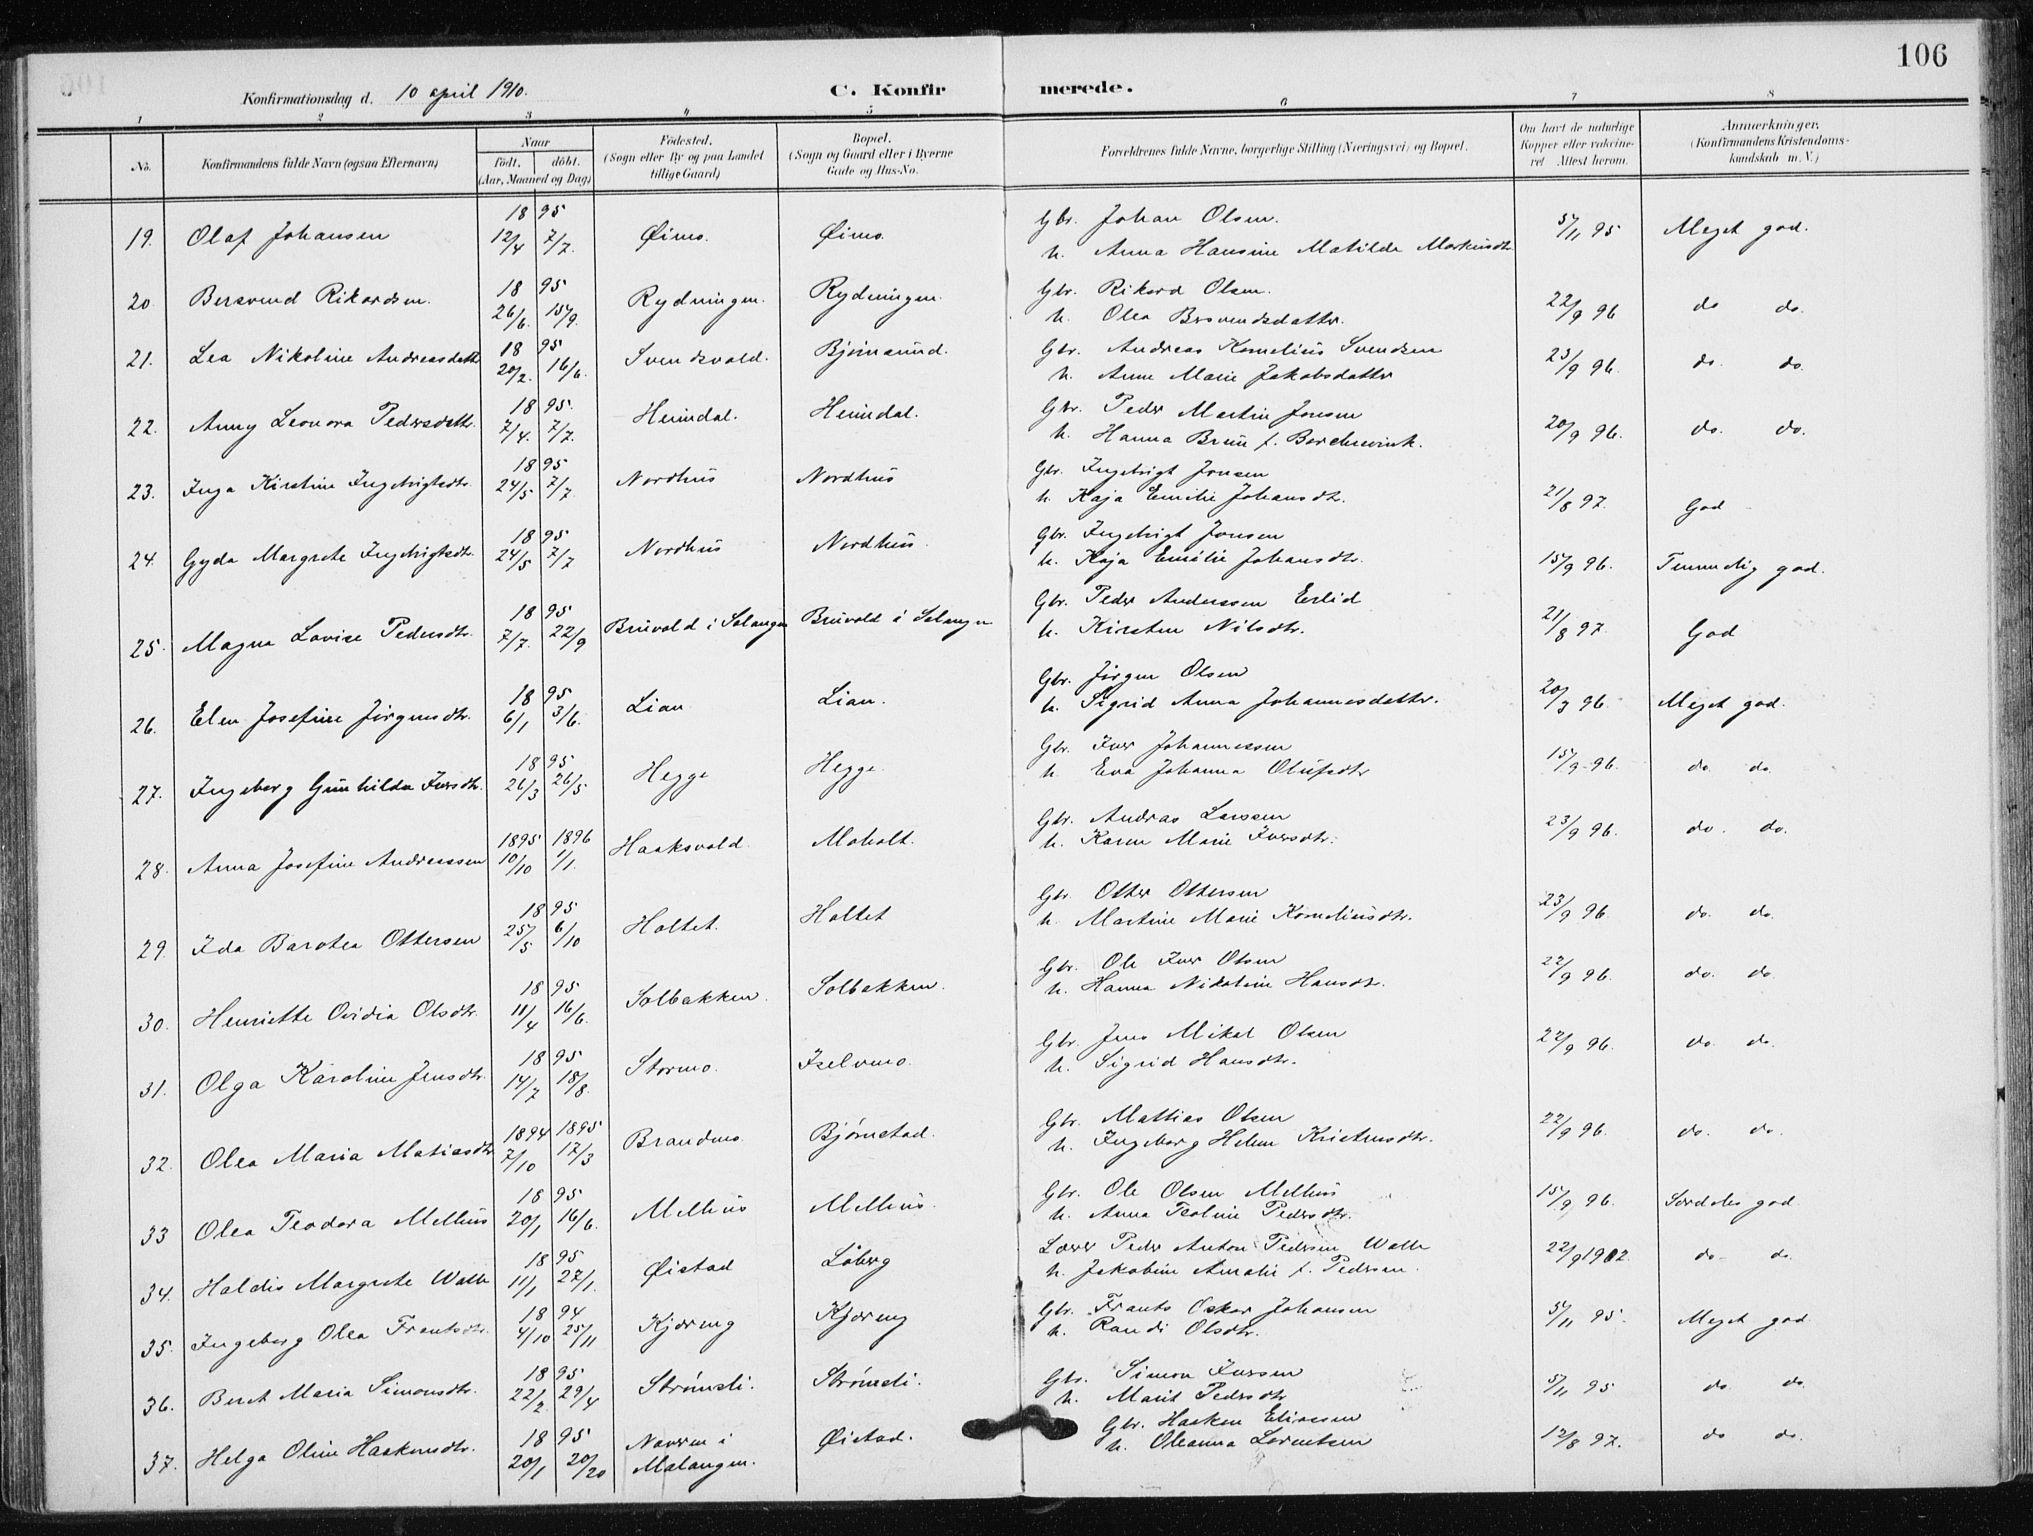 106
Konfirmationsdag d. 10 april 1910.
C. Konfirmerede.
1 2 3 4 5 6 7 8
No.
Konfirmandens fulde Navn (ogsaa Efternavn)
Naar
født. døbt.
(Aar, Maaned og Dag)
Fødested.
(Sogn eller By og paa Landet
tillige Gaard)
Bopæl.
(Sogn og Gaard eller i Byerne
Gade og Hus-No.
Forældrenes fulde Navne, borgerlige Stilling (Næringsvei) og Bopæl.
Om havt de naturlige
Kopper eller vakcine-
ret Attest herom.
Anmærkninger.
(Konfirmandens Kristendoms-
kundskab m. V.)
19. Olaf Johansen 1895 12/4 7/7. Øimo. Øimo. Gbr. Johan Olsen. 5/11 95 Meget god.
h. Anna Hansine Matilde Markusdtr
20. Bersvend Rikardsen. 1895 26/6. 15/9. Rydningen. Rydningen. Gbr. Rikard Olsen. 22/9 96 do do.
h. Olea Bersvendsdatter.
21. Lea Nikoline Andreasdatt 1895 20/2. 16/6. Svendsvold. Bjørnsund. Gbr. Andreas Kornelius Svendsen 23/9 96. do. do.
h. Anne Marie Jakobsdatter
22. Anny Leonora Pedersdattr. 1895. 7/4. 7/7. Heimdal. Heimdal. Gbr. Peder Martin Jensen 20/9 96. do. do.
h. Hanna Bruu f. Borchrevink.
23. Inga Kirstine Ingebrigtsdtr. 1895 24/5 7/7 Nordhus Nordhus Gbr. Ingebrigt Jonsen 21/8 97. God
h. Kaja Emilie Johansdtr.
24. Gyda Margrete Ingebrigtsdtr. 1895 24/5 7/7 Nordhus Nordhus. Gbr. Ingebrigt Jonsen 15/9 96. Temmelig god.
h. Kaja Emilie Johansdtr.
25. Magna Lovise Pedersdtr. 1895 7/7. 22/9 Bruvold i Salangen Bruvold i Salangen Gbr. Peder Anderssen Erlid 21/8 97. God
h. Kirsten Nilsdtr.
26. Elen Josefine Jørgensdtr. 1895 6/1 3/6. Lian Lian. Gbr. Jørgen Olsen 20/3 96. Meget god.
h. Sigrid Anna Johannesdatter.
27. Ingeborg Gunhilda Iversdtr. 1895 26/3 26/5 Hegge Hegge Gbr. Iver Johannessen 15/9 96. do. do.
h. Eva Johanna Olufsdtr
28. Anna Josefine Andreassen 1895 10/10 1896 1/1. Haaksvold. Moholt. Gbr. Andreas Larssen 23/9 96. do. do.
h. Karen Marie Iversdtr.
29. Ida Barotea Ottersen 1895 25/5 6/10 Holtet. Holtet Gbr. Otter Ottersen 23/9 96. do. do.
h. Martine Marie Korneliusdtr.
30. Henriette Ovidia Olsdtr. 1895 11/4 16/6. Solbakken. Solbakken. Gbr. Ole Iver Olsen 22/9 96. do. do.
h. Hanna Nikoline Hansdtr.
31. Olga Karoline Jensdtr. 1895 14/7 18/8. Stormo. Iselvmo. Gbr. Jens Mikal Olsen 22/9 96. do. do.
h. Sigrid Hansdtr.
32. Olea Maria Matiasdtr 1894 7/10 1895 17/3 Brandmo. Bjørnstad. Gbr. Mattias Olsen 22/9 96. do. do.
h. Ingeborg Helene Kristensdtr.
33 Olea Teodora Melhus 1895 20/1 16/6. Melhus Melhus. Gbr. Ole Olsen Melhus 15/9 96. Særdeles god
h. Anna Taline Pedersdtr.
34. Haldis Margrete Walle 1895 11/1 27/1. Øistad Løberg Lærer Peder Anton Pedersen Walle 22/9 1902. do do.
h. Jakobine Amalie f. Pedersen.
35. Ingeborg Olea Frantsdtr. 1894 4/10 25/11 Kjæreng Kjæreng Gbr. Frants Oskar Johansen 5/11 95. Meget god
h. Randi Olsdtr.
36. Beret Maria Simonsdtr. 1895 22/2 29/4 Strømsli. Strømsli. Gbr. Simon Iversen 5/11 95 do. do.
h. Marit Pedersdtr
37. Helga Oline Haakensdtr. 1895 20/1 20/20 Navren i Øistad. Gbr. Haaken Eliassen 12/8 97. do do.
Malangen. h. Oleanna Lorentsen